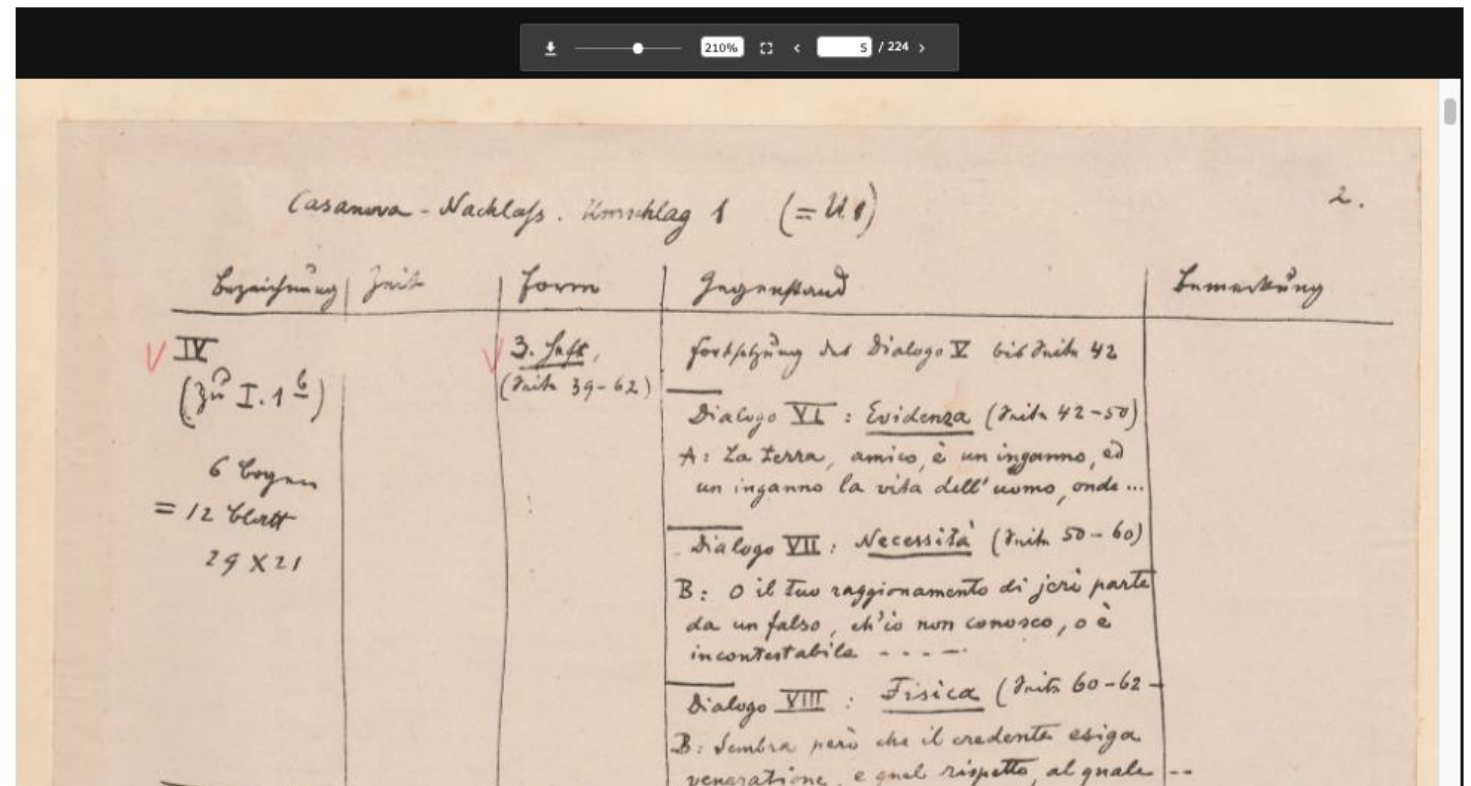 210% 5 / 224
Casanova-Nachlaß. Umschlag 1 (= U 1) 2.
Bezeichnung Zeit Form Gegenstand Bemerkung
IV 3. Heft, Fortsetzung des Dialogo V bis Seite 42
(Zu I. 1 b) (Seite 39-62)
Dialogo VI : Evidenza (Seite 42-50)
A: La terra, amico, è un inganno, ed
6 Bogen un inganno la vita dell'uomo, onde ...
= 12 Blatt
29 X 21 Dialogo VII : Necessità (Seite 50-60)
B: O il tuo raggionamento di jeri parte
da un falso, ch'io non conosco, o è
incontestabile - - - -
Dialogo VIII : Fisica (Seite 60-62 -
B: Sembra però che il credente esiga
venerazione, e quel rispetto, al quale --